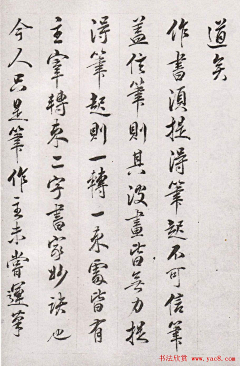 道矣
作書須提得筆起不可信筆
蓋信筆則其波畫皆無力提
得筆起則一轉一束處皆有
主宰轉束二字書家妙訣也
今人只是筆作主未嘗運筆
书法欣赏 www.yac8.com